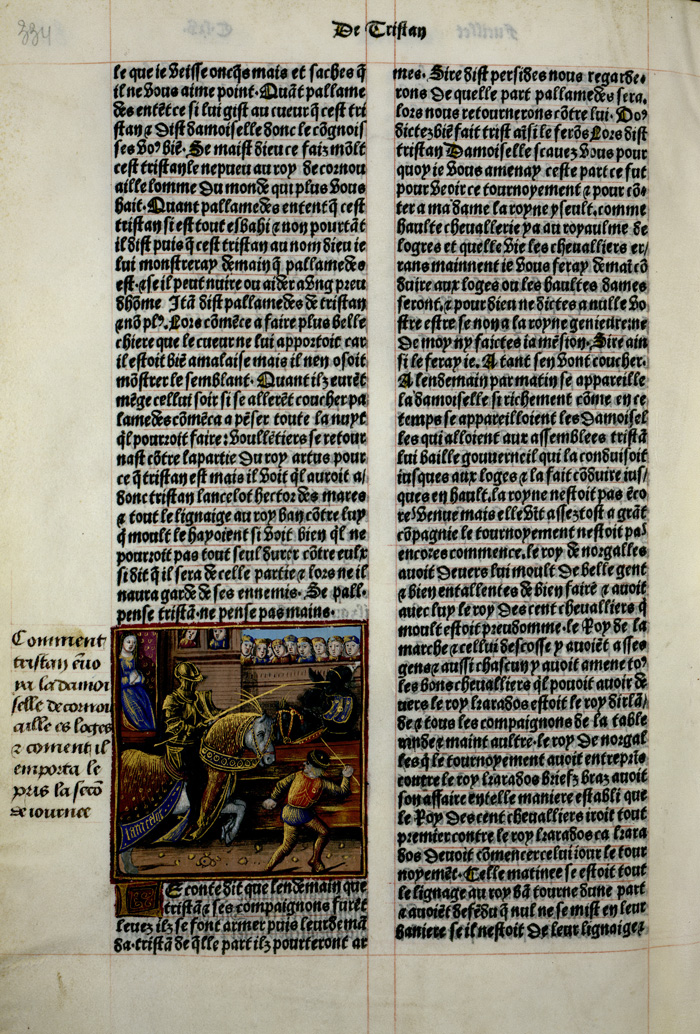 334
De Tristan
le que ie veisse oncq̄s mais et saches q̄
il ne vous aime point. Quāt pallame
des entēt ce si lui gist au cueur q̄ cest tri
stan ⁊ dist damoiselle donc le cōgnois
ses voꝰ biē. Se maist dieu ce faiz mōlt
cest tristan le nepueu au roy de cornou
aille lomme du monde qui plus vous
hait. Quant pallamedes entent q̄ cest
tristan si est tout esbahi ⁊ non pourtāt
il dist puis q̄ cest tristan au nom dieu ie
lui monstreray demain q̄ pallamedes
est. ⁊ se il peut nuire ou aider a vng preu
dhōme Itā dist pallamedes de tristan
⁊ nō plꝰ. Lors cōmēce a faire plus belle
chiere que le cueur ne lui apportoit car
il estoit biē amalaise mais il nen osoit
mōstrer le semblant. Quant ilz eurēt
mēge cellui soir si se allerēt coucher pa
lamedes cōmēca a pēser toute la nuyt
q̄l pourroit faire: voullētiers se retour
nast cōtre la partie du roy artus pour
ce q̄ tristan est mais il voit q̄l auroit a/
donc tristan lancelot hector des mares
⁊ tout le lignaige au roy ban cōtre luy
q̄ moult le hayoient si voit bien q̄l ne
pourroit pas tout seul durer cōtre eulx
si dit q̄ il sera de celle partie ⁊ lors ne il
naura garde de ses ennemis. Se pall.
pense tristā. ne pense pas mains.
Comment
tristan ēuo
ya la damoi
selle de cornou
aille es loges
⁊ coment il
emporta le
pris la secō
de iournee
Le conte dit que lendemain que
tristā ⁊ ses compaignons furēt
leuez ilz se font armer puis leur demā
da. tristā de q̄lle part ilz pourteront ar
mes. Sire dist persides nous regarde.
rons de quelle part pallamedes sera.
lors nous retournerons cōtre lui. Voꝰ
dictez biē fait tristā aīsi le ferōs Lors dist
tristan Damoiselle scauez vous pour
quoy ie vous amenay ceste part ce fut
pour veoir ce tournoyement ⁊ pour cō.
ter a madame la royne yseult. comme
haulte cheuallerie ya au royaulme de
logres et quelle vie les cheualliers er/
rans mainnent ie vous feray demaī cō
duire aux loges ou les haultes dames
seront. ⁊ pour dieu ne dictes a nulle vo
stre estre se non a la royne genieure ne
de moy ny faictes ia mēsion. Sire ain
si le feray ie. A tant sen vont coucher.
A lendemain par matin se appareille
la damoiselle si richement cōme en ce
temps se appareilloient les damoisel
les qui alloient aux assemblees tristā
lui baille gouuerneil qui la conduisoit
iusques aux loges ⁊ la fait cōduire ius/
ques en hault. la royne nestoit pas ēco
re venue mais elle vīt assez tost a grāt
cōpagnie le tournoyement nestoit paꝰ
encores commence. le roy de norgalles
auoit deuers lui moult de belle gent
⁊ bien entallentes de bien faire ⁊ auoit
auec luy le roy des cent cheualliers q̄
moult estoit preudomme. le Roy de la
marche ⁊ cellui descosse y auoiēt asses
gens ⁊ aussi chascun y auoit amene toꝰ
les bons cheualliers q̄l pouoit auoir de
uers le roy karados estoit le roy dirlā/
de ⁊ tous les compaignons de la table
ronde ⁊ maint aultre. le roy de norgal
les q̄ le tournoyement auoit entrepris
contre le roy karados briefz braz auoit
son affaire en telle maniere establi que
le Roy des cent cheualliers iroit tout
premier contre le roy karados ca kara
dos deuoit cōmencer celui iour le tour
noyemēt. Celle matinee se estoit tout
le lignage au roy bā tourne dune part
⁊ auoiēt defēdu q̄ nul ne se mist en leur
baniere se il nestoit de leur lignaige